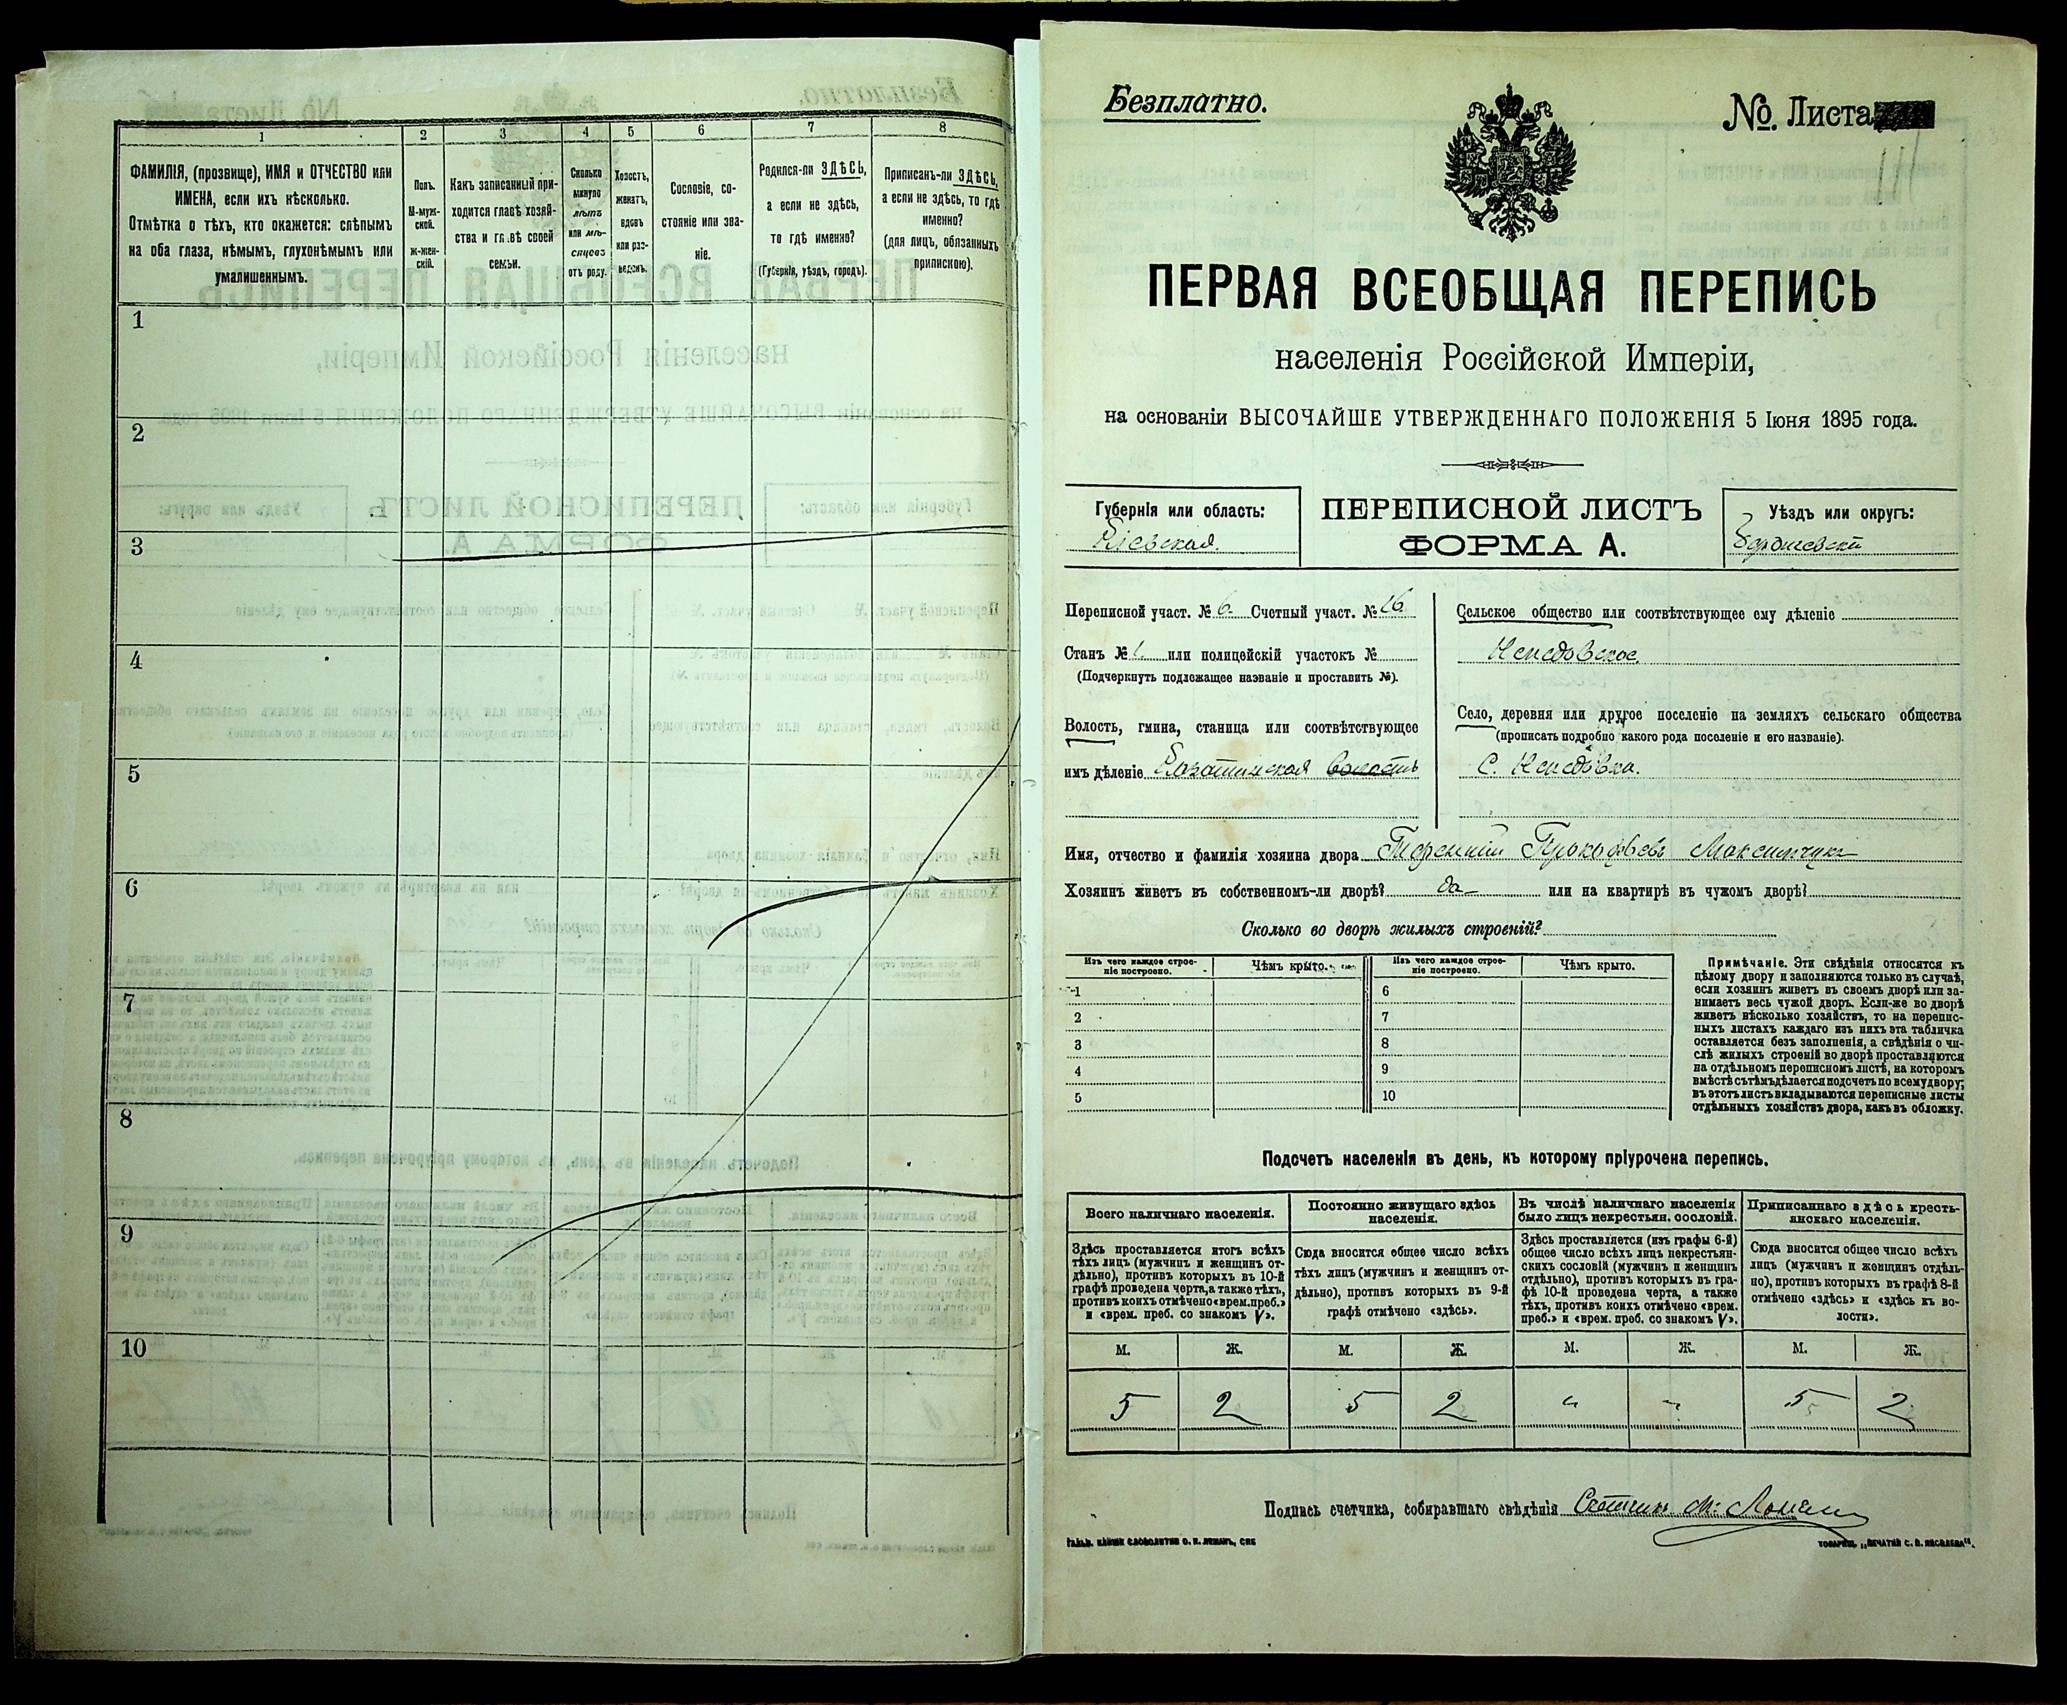 1 2 3 4 5 6 7 8
ФАМИЛІЯ, (прозвище), ИМЯ и ОТЧЕСТВО или
ИМЕНА, если ихъ нѣсколько.
Отмѣтка о тѣхъ, кто окажется: слѣпымъ
на оба глаза, нѣмымъ, глухонѣмымъ или
умалишеннымъ.
Полъ.
М-муж-
ской.
Ж-жен-
скій.
Какъ записанный при-
ходится главѣ хозяй-
ства и главѣ своей
семьи.
Сколько
минуло
лѣтъ
или мѣ-
сяцевъ
отъ роду.
Холостъ,
женатъ,
вдовъ
или раз-
веденъ.
Сословіе, со-
стояніе или зва-
ніе.
Родился-ли ЗДѢСЬ,
а если не здѣсь,
то гдѣ именно?
(Губернія, уѣздъ, городъ).
Приписанъ-ли ЗДѢСЬ,
а если не здѣсь, то гдѣ
именно?
(для лицъ, обязанныхъ
припискою).
1
2
3
4
5
6
7
8
9
10
Безплатно.
№. Листа
ПЕРВАЯ ВСЕОБЩАЯ ПЕРЕПИСЬ
населенія Россійской Имперіи,
на основаніи ВЫСОЧАЙШЕ УТВЕРЖДЕННАГО ПОЛОЖЕНІЯ 5 Іюня 1895 года.
Губернія или область:
Кіевская.
ПЕРЕПИСНОЙ ЛИСТЪ
ФОРМА А.
Уѣздъ или округъ:
Бердичевскій
Переписной участ. № 6. Счетный участ. № 26.
Станъ № 1. или полицейскій участокъ №
(Подчеркнуть подлежащее названіе и проставить №).
Волость, гмина, станица или соотвѣтствующее
имъ дѣленіе Казатинская волость
Сельское общество или соотвѣтствующее ему дѣленіе
Непедовское.
Село, деревня или другое поселеніе на земляхъ сельскаго общества
(прописать подробно какого рода поселеніе и его названіе).
С. Непедовка.
Имя, отчество и фамилія хозяина двора Терентій Прокофьевъ Максимчукъ
Хозяинъ живетъ въ собственномъ-ли дворѣ? да или на квартирѣ въ чужомъ дворѣ?
Сколько во дворѣ жилыхъ строеній?
Изъ чего каждое строе-
ніе построено.
Чѣмъ крыто.
Изъ чего каждое строе-
ніе построено.
Чѣмъ крыто.
1 6
2 7
3 8
4 9
5 10
Примѣчаніе. Эти свѣдѣнія относятся къ
цѣлому двору и заполняются только въ случаѣ,
если хозяинъ живетъ въ своемъ дворѣ или за-
нимаетъ весь чужой дворъ. Если-же во дворѣ
живетъ нѣсколько хозяйствъ, то на перепис-
ныхъ листахъ каждаго изъ нихъ эта табличка
оставляется безъ заполненія, а свѣдѣнія о чи-
слѣ жилыхъ строеній во дворѣ проставляются
на отдѣльномъ переписномъ листѣ, на которомъ
вмѣстѣ съ тѣмъ дѣлается подсчетъ по всему двору;
въ этотъ листъ вкладываются переписные листы
отдѣльныхъ хозяйствъ двора, какъ въ обложку.
Подсчетъ населенія въ день, къ которому пріурочена перепись.
Всего наличнаго населенія.
Постоянно живущаго здѣсь
населенія.
Въ числѣ наличнаго населенія
было лицъ некрестьян. сословій.
Приписаннаго здѣсь кресть-
янскаго населенія.
Здѣсь проставляется итогъ всѣхъ
тѣхъ лицъ (мужчинъ и женщинъ от-
дѣльно), противъ которыхъ въ 10-й
графѣ проведена черта, а также тѣхъ,
противъ коихъ отмѣчено «врем. преб.»
и «врем. преб. со знакомъ V».
Сюда вносится общее число всѣхъ
тѣхъ лицъ (мужчинъ и женщинъ от-
дѣльно), противъ которыхъ въ 9-й
графѣ отмѣчено «здѣсь».
Здѣсь проставляется (изъ графы 6-й)
общее число всѣхъ лицъ некрестьян-
скихъ сословій (мужчинъ и женщинъ
отдѣльно), противъ которыхъ въ гра-
фѣ 10-й проведена черта, а также
тѣхъ, противъ коихъ отмѣчено «врем.
преб.» и «врем. преб. со знакомъ V».
Сюда вносится общее число всѣхъ
лицъ (мужчинъ и женщинъ отдѣль-
но), противъ которыхъ въ графѣ 8-й
отмѣчено «здѣсь» и «здѣсь къ во-
лости».
М. Ж. М. Ж. М. Ж. М. Ж.
5 2 5 2 " " 5 2
Подпись счетчика, собиравшаго свѣдѣнія Счетчикъ М: